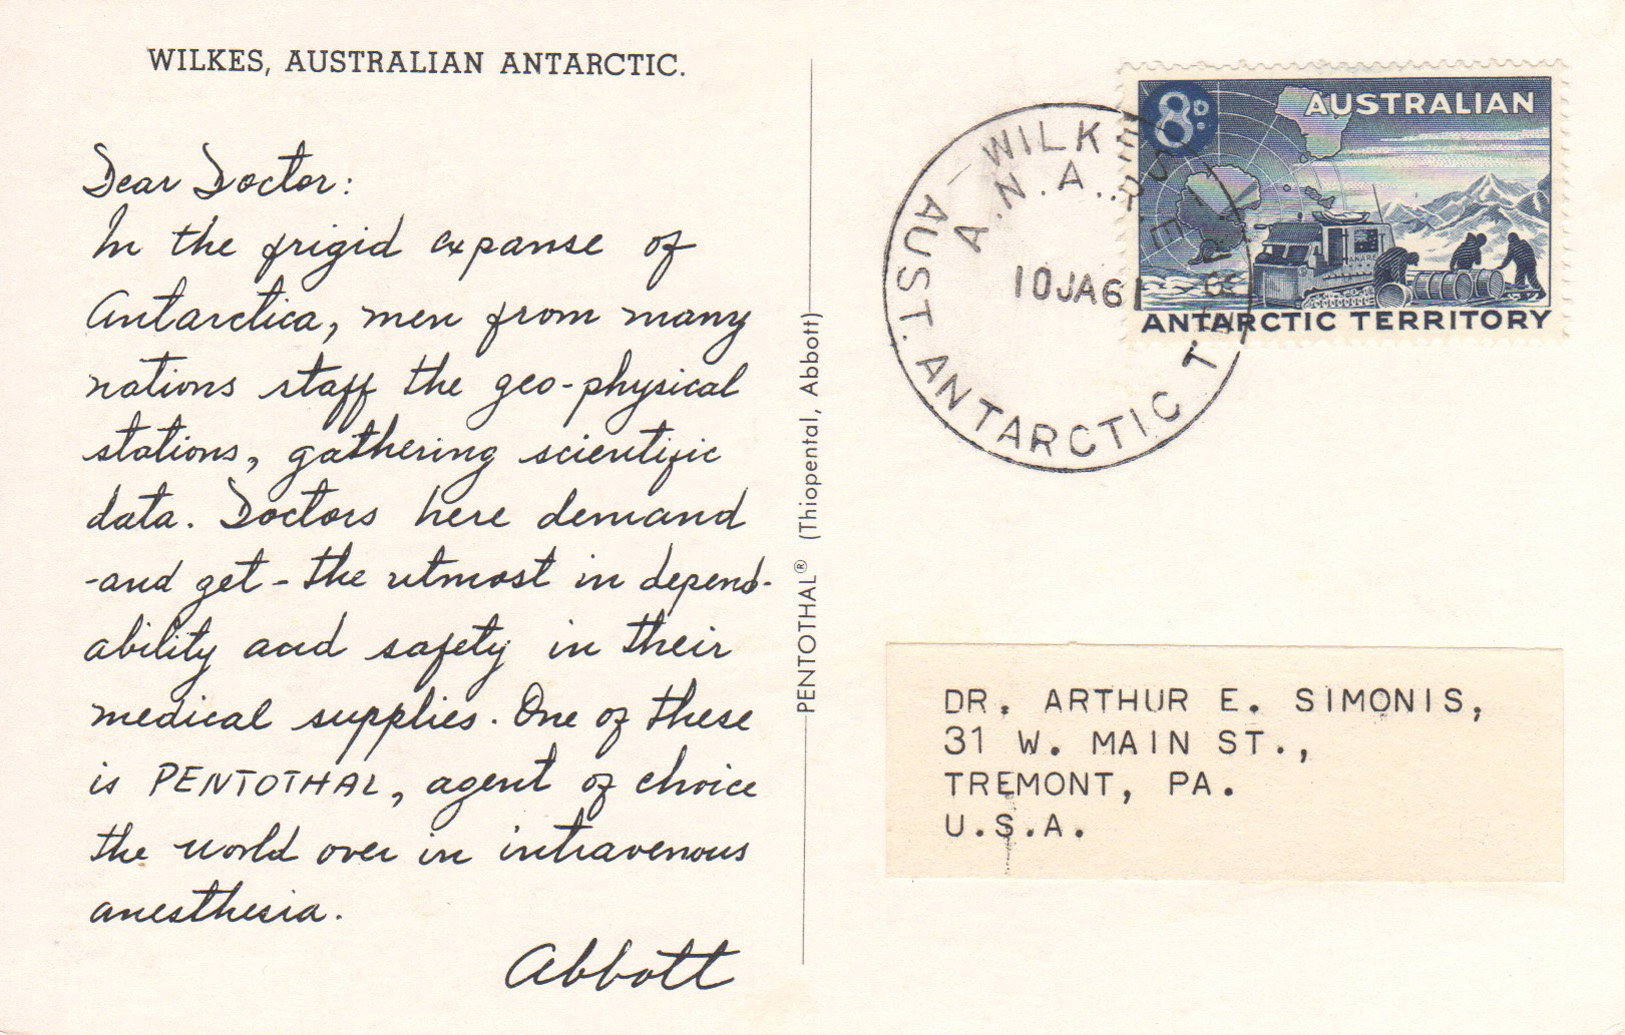 WILKES, AUSTRALIAN ANTARCTIC.
Dear Doctor:
In the frigid expanse of
Antarctica, men from many
nations staff the geo-physical
stations, gathering scientific
data. Doctors here demand
-and get - the utmost in depend-
ability and safety in their
medical supplies. One of these
is PENTOTHAL, agent of choice
the world over in intravenous
anesthesia.
Abbott
PENTOTHAL® (Thiopental, Abbott)
8D.
AUSTRALIAN
ANARE
ANTARCTIC TERRITORY
WILKES
A.N.A.R.E.
10JA61
AUST. ANTARCTIC T
DR. ARTHUR E. SIMONIS,
31 W. MAIN ST.,
TREMONT, PA.
U.S.A.